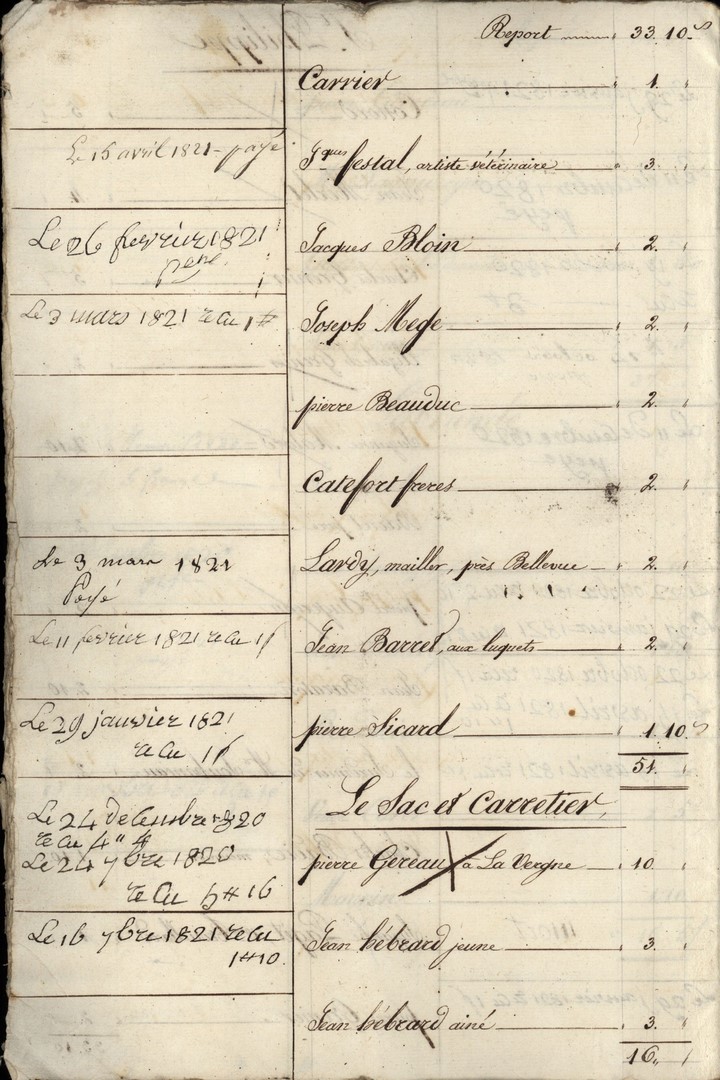 Report 33. 10 s
Carrier 1. "
Le 15 avril 1821 - payé
Jques festal, artiste vétérinaire " 3. "
Le 26 fevrier 1821
payé
Jacques Bloin " 2. "
Le 3 mars 1821 recu 1 #
Joseph Mege " 2. "
pierre Beauduc " 2. "
Catefort freres 2. "
Le 3 mars 1821
Payé
Lardy, mailler, près Bellevue " 2. "
Le 11 fevrier 1821 recu 1 f
Jean Barret, aux luquets " 2. "
Le 29 janvier 1821
recu 1 f
pierre Sicard " 1. 10 s
51. "
Le Sac et Carretier,
Le 24 Decembre 1820
recu 4 " #
Le 24 7bre 1820
recu 5 # 16
pierre Gereau à La Vergne " 10. "
Le 16 7bre 1821 recu
1 # 10
Jean hébrard jeune " 3. "
Jean hébrard ainé " 3. "
16. "